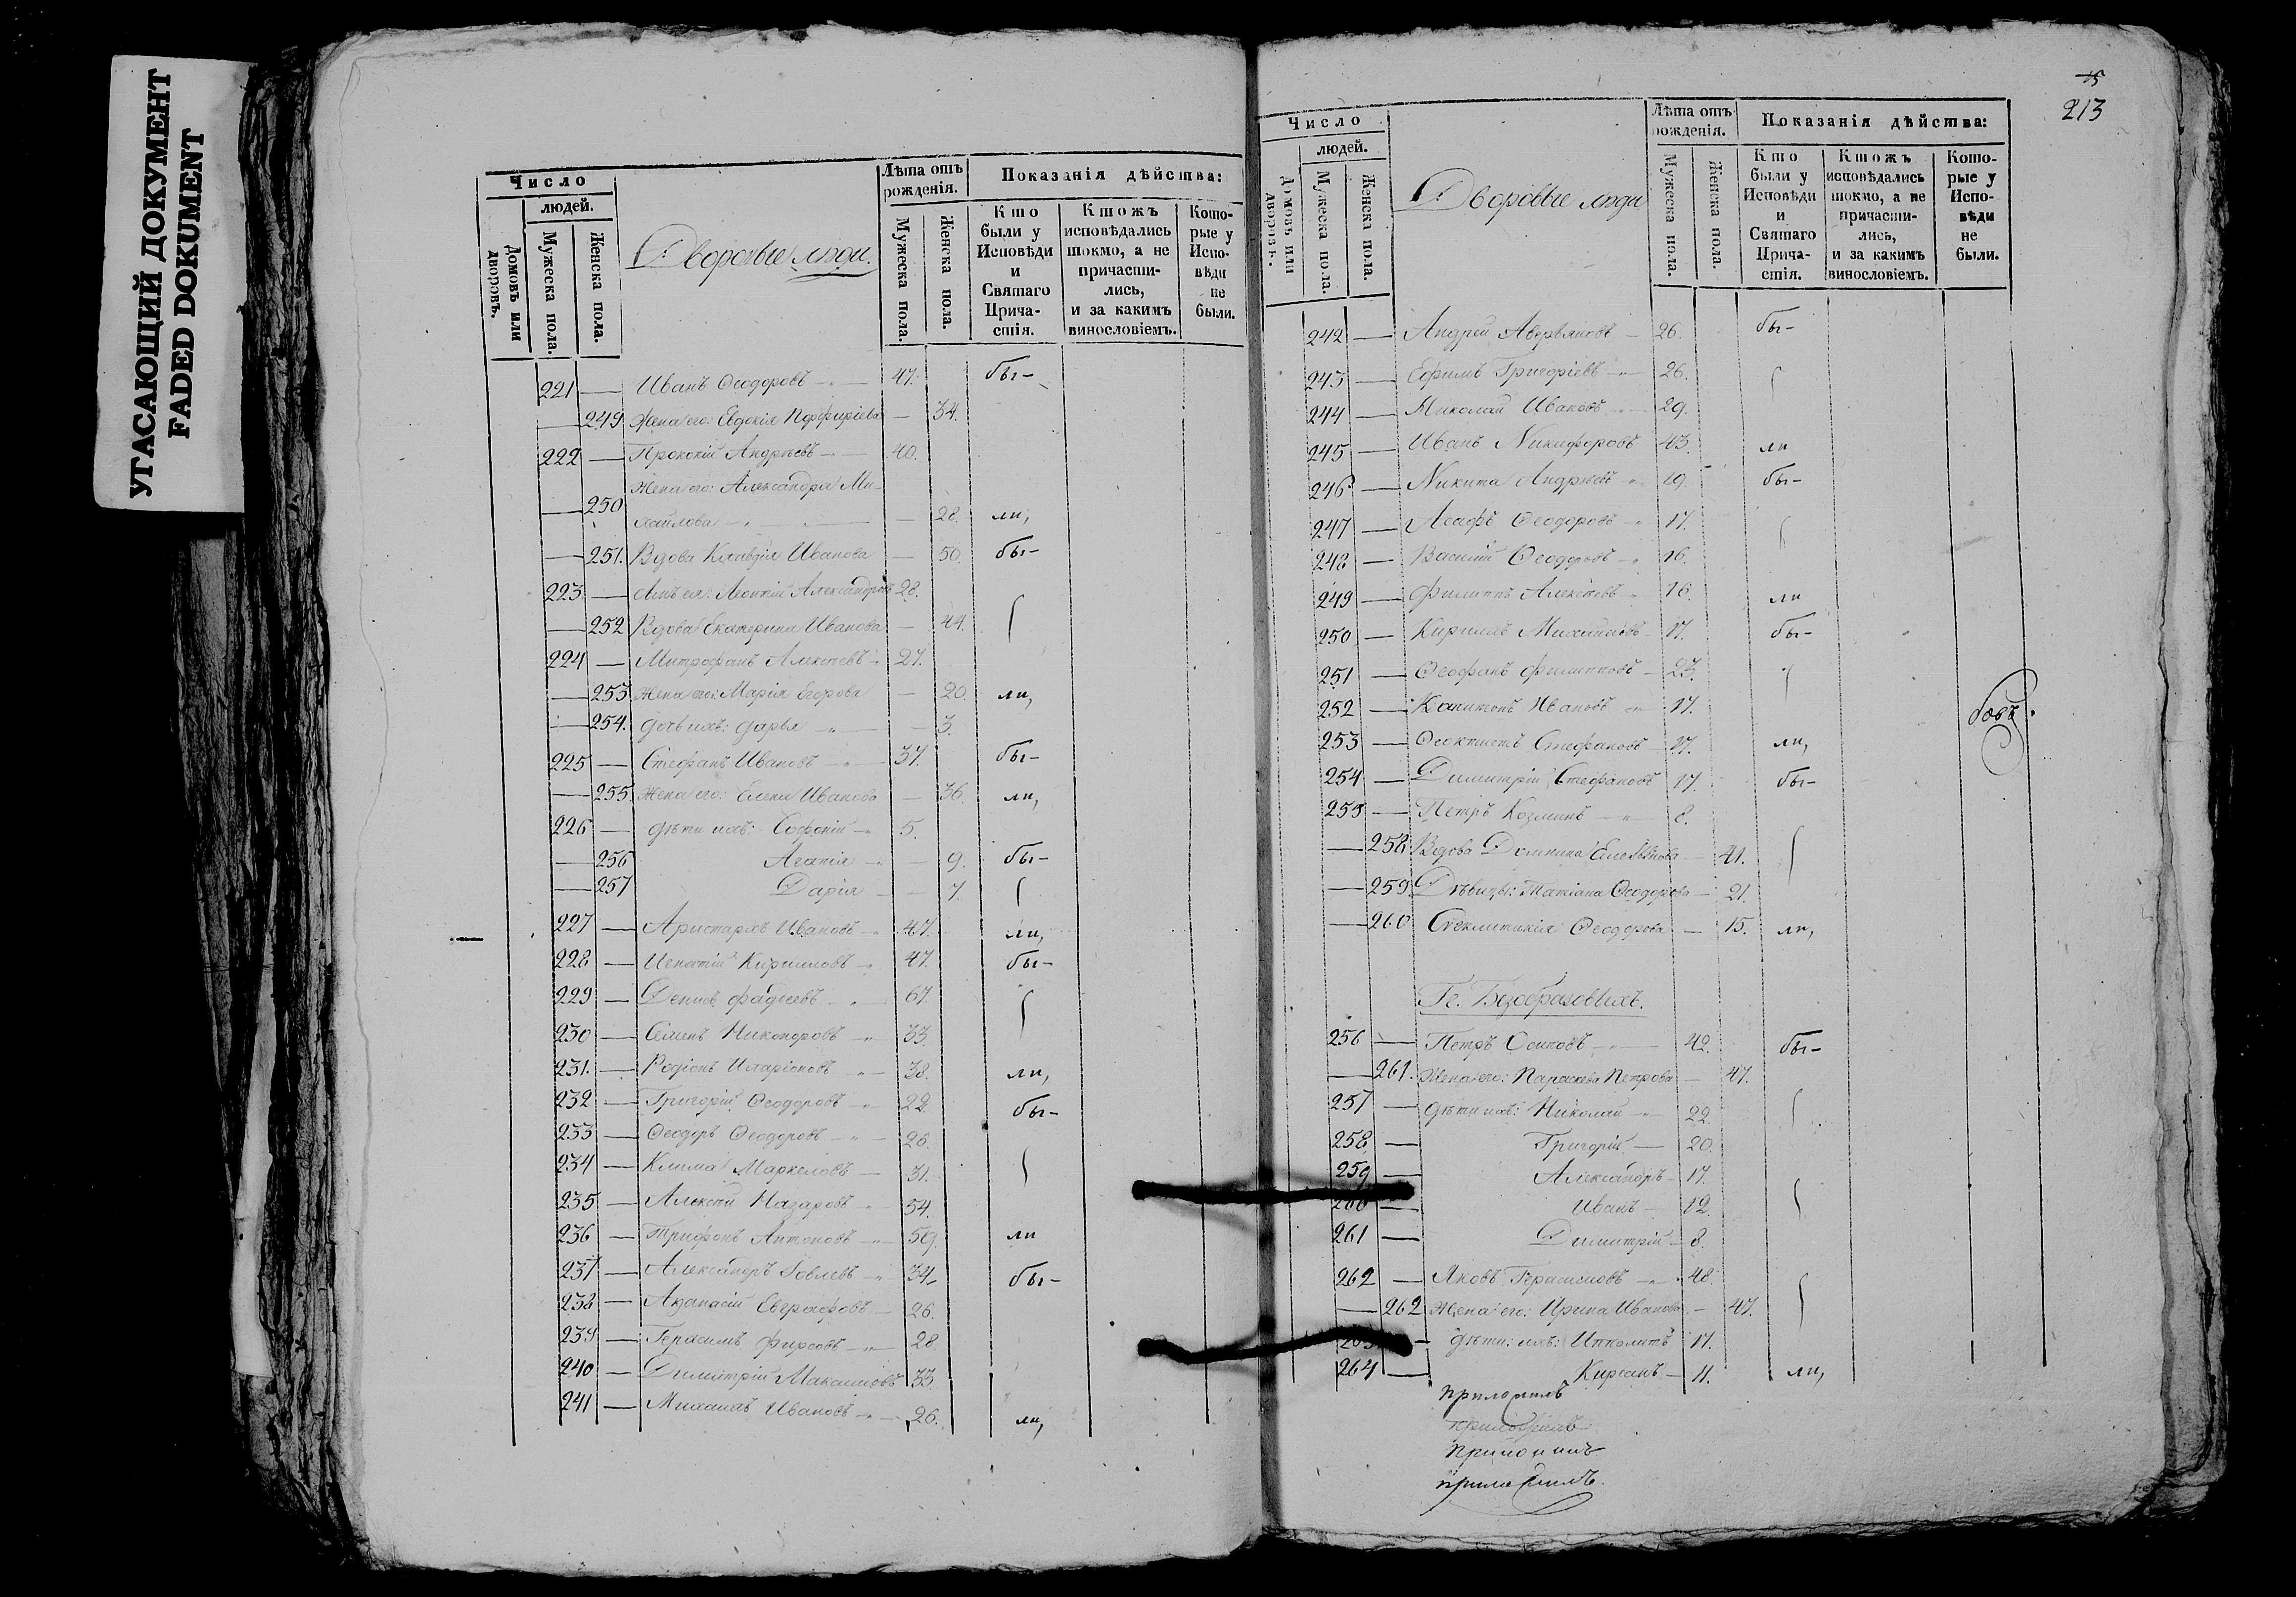 УГАСАЮЩИЙ ДОКУМЕНТ
FADED DOKUMENT
Число
людей.
Домовъ или дворовъ.
Мужеска пола.
Женска пола.
Дворовые люди.
Лѣта отъ рожденія.
Мужеска пола.
Женска пола.
Показанія дѣйства:
Кто были у Исповѣди и Святаго Прича-стія.
Ктожъ исповѣдались токмо, а не причасти-лись, и за какимъ винословіемъ.
Кото-рые у Испо-вѣди не были.
221 — Иванъ Ѳеодоровъ — 47. бы-
— 249 Жена его: Евдокія Порфиріева — 34.
222 — Андреевъ — 40.
— 250 Жена его: Александра Ми-
хайлова — 28. ли,
— 251. Вдова Клавдія Иванова — 50. бы-
223 — Сынъ ея: Леонтій Александровъ 28.
— 252 Вдова Екатерина Иванова — 44.
224 — Митрофанъ Алексѣевъ — 27.
— 253 Жена его: Марія Егорова — 20. ли,
— 254. Дочь ихъ: Дарья — 3.
225 — Стефанъ Ивановъ — 37. бы-
— 255 Жена его: Елена Иванова — 36. ли,
226 — Дѣти ихъ: Софоній — 5.
— 256 Агаѳія — 9. бы-
— 257 Дарія — 7.
227 — Аристархъ Ивановъ — 47. ли,
228 — Игнатій Кириловъ — 47. бы-
229 — Денисъ Фадѣевъ — 67.
230 — Семенъ Никоноровъ — 33.
231. — Родіонъ Иларіоновъ — 38. ли,
232 — Григорій Ѳеодоровъ — 22. бы-
233 — Ѳеодоръ Ѳеодоровъ — 26.
234 — Клима Маркеловъ — 31.
235 — Алексѣй Назаровъ — 54.
236 — Трифонъ Антоновъ — 59. ли
237 — Александръ — 34. бы-
238 — Аѳанасій Евграфовъ — 26.
239 — Герасимъ Фирсовъ — 28
240 — Димитрій Максимовъ 33.
241 — Михаилъ Ивановъ — 26. ли,
15
213
Число
людей.
Домовъ или дворовъ.
Мужеска пола.
Женска пола.
Дворовые люди
Лѣта отъ рожденія.
Мужеска пола.
Женска пола.
Показанія дѣйства:
Кто были у Исповѣди и Святаго Прича-стія.
Ктожъ исповѣдались токмо, а не причасти-лись, и за какимъ винословіемъ.
Кото-рые у Испо-вѣди не были.
242 — Андрей Аверьяновъ — 26. бы-
243 — Ефимъ Григоріевъ — 26.
244 — Николай Ивановъ — 29.
245 — Иванъ Никифоровъ 43. ли
246 — Никита Андреевъ — 19 бы-
247 — Агафъ Ѳеодоровъ — 17.
248 — Василій Ѳеодоровъ — 16.
249 — Филиппъ Алексѣевъ — 16. ли
250 — Кирилъ Михайловъ — 17. бы-
251 — Ѳеофанъ Филипповъ — 23.
252 — Капитонъ Ивановъ — 17.
253 — Ѳеоктистъ Стефановъ — 17. ли,
254 — Димитрій Стефановъ 17. бы-
255 — Петръ Козминъ — 8.
— 258 Вдова Домнина — 41.
— 259. Дѣвицы: Татіана Ѳеодорова — 21.
— 260 Ѳеодорова — 15. ли,
Гг. Безобразовыхъ.
256 — Петръ Осиповъ — 42. бы-
— 261. Жена его: Параскева Петрова — 47.
257 — Дѣти ихъ: Николай — 22.
258 — Григорій — 20.
259 — Александръ — 17.
260 — Иванъ — 12.
261 — Димитрій — 8.
262 — Яковъ Герасимовъ — 48.
— 262 Жена его: Ирина Иванова — 47.
263 — Дѣти: ихъ: Ипполитъ 17.
264 — Кирсанъ — 11. ли,
приложилъ
приложилъ
приложилъ
приложилъ.